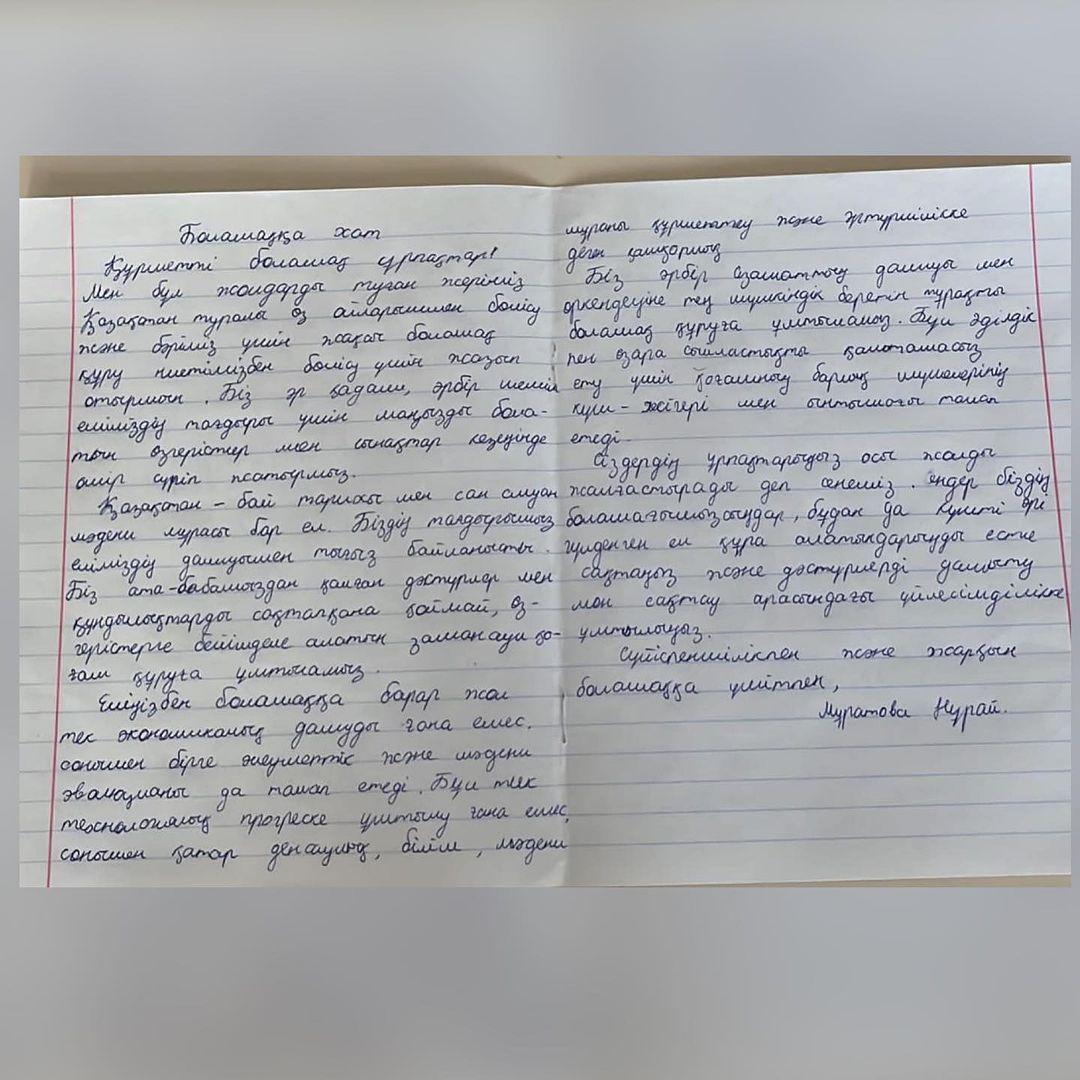 Болашаққа хат
Құрметті болашақ ұрпақтар!
Мен бұл жолдарды туған жеріміз
Қазақстан туралы өз ойларыммен бөлісу
және бәріміз үшін жақсы болашақ
құру ниетімізбен бөлісу үшін жазып
отырмын. Біз әр қадам, әрбір шешім
еліміздің тағдыры үшін маңызды бола-
тын өзгерістер мен сынақтар кезеңінде
өмір сүріп жатырмыз.
Қазақстан - бай тарихы мен сан алуан
мәдени мұрасы бар ел. Біздің тағдырымыз
еліміздің дамуымен тығыз байланысты.
Біз ата-бабамыздан қалған дәстүрлер мен
құндылықтарды сақтап қана қоймай, өз-
герістерге бейімделе алатын заманауи қо-
ғам құруға ұмтыламыз.
Еліміздің болашаққа барар жол
тек экономиканың дамуды ғана емес,
сонымен бірге әлеуметтік және мәдени
эволюцияны да талап етеді. Бұл тек
технологиялық прогреске ұмтылу ғана емес,
сонымен қатар денсаулық, білім, мәдени
мұраны құрметтеу және әртүрлілікке
деген қамқорлық
Біз әрбір азаматтың дамуы мен
өркендеуіне тең мүмкіндік беретін тұрақты
болашақ құруға ұмтыламыз. Бұл әділдік
пен өзара сыйластықты қамтамасыз
ету үшін қоғамның барлық мүшелерінің
күш-жігері мен ынтымағы талап
етеді.
Сіздердің ұрпақтарыңыз осы жолды
жалғастырады деп сенеміз. Сендер біздің
болашағымызсыңдар, бұдан да күшті әрі
гүлденген ел құра алатындарыңды есте
сақтаңыз және дәстүрлерді дамыту
мен сақтау арасындағы үйлесімділікке
ұмтылыңыз.
Сүйіспеншілікпен және жарқын
болашаққа үмітпен,
Муратова Нұрай.